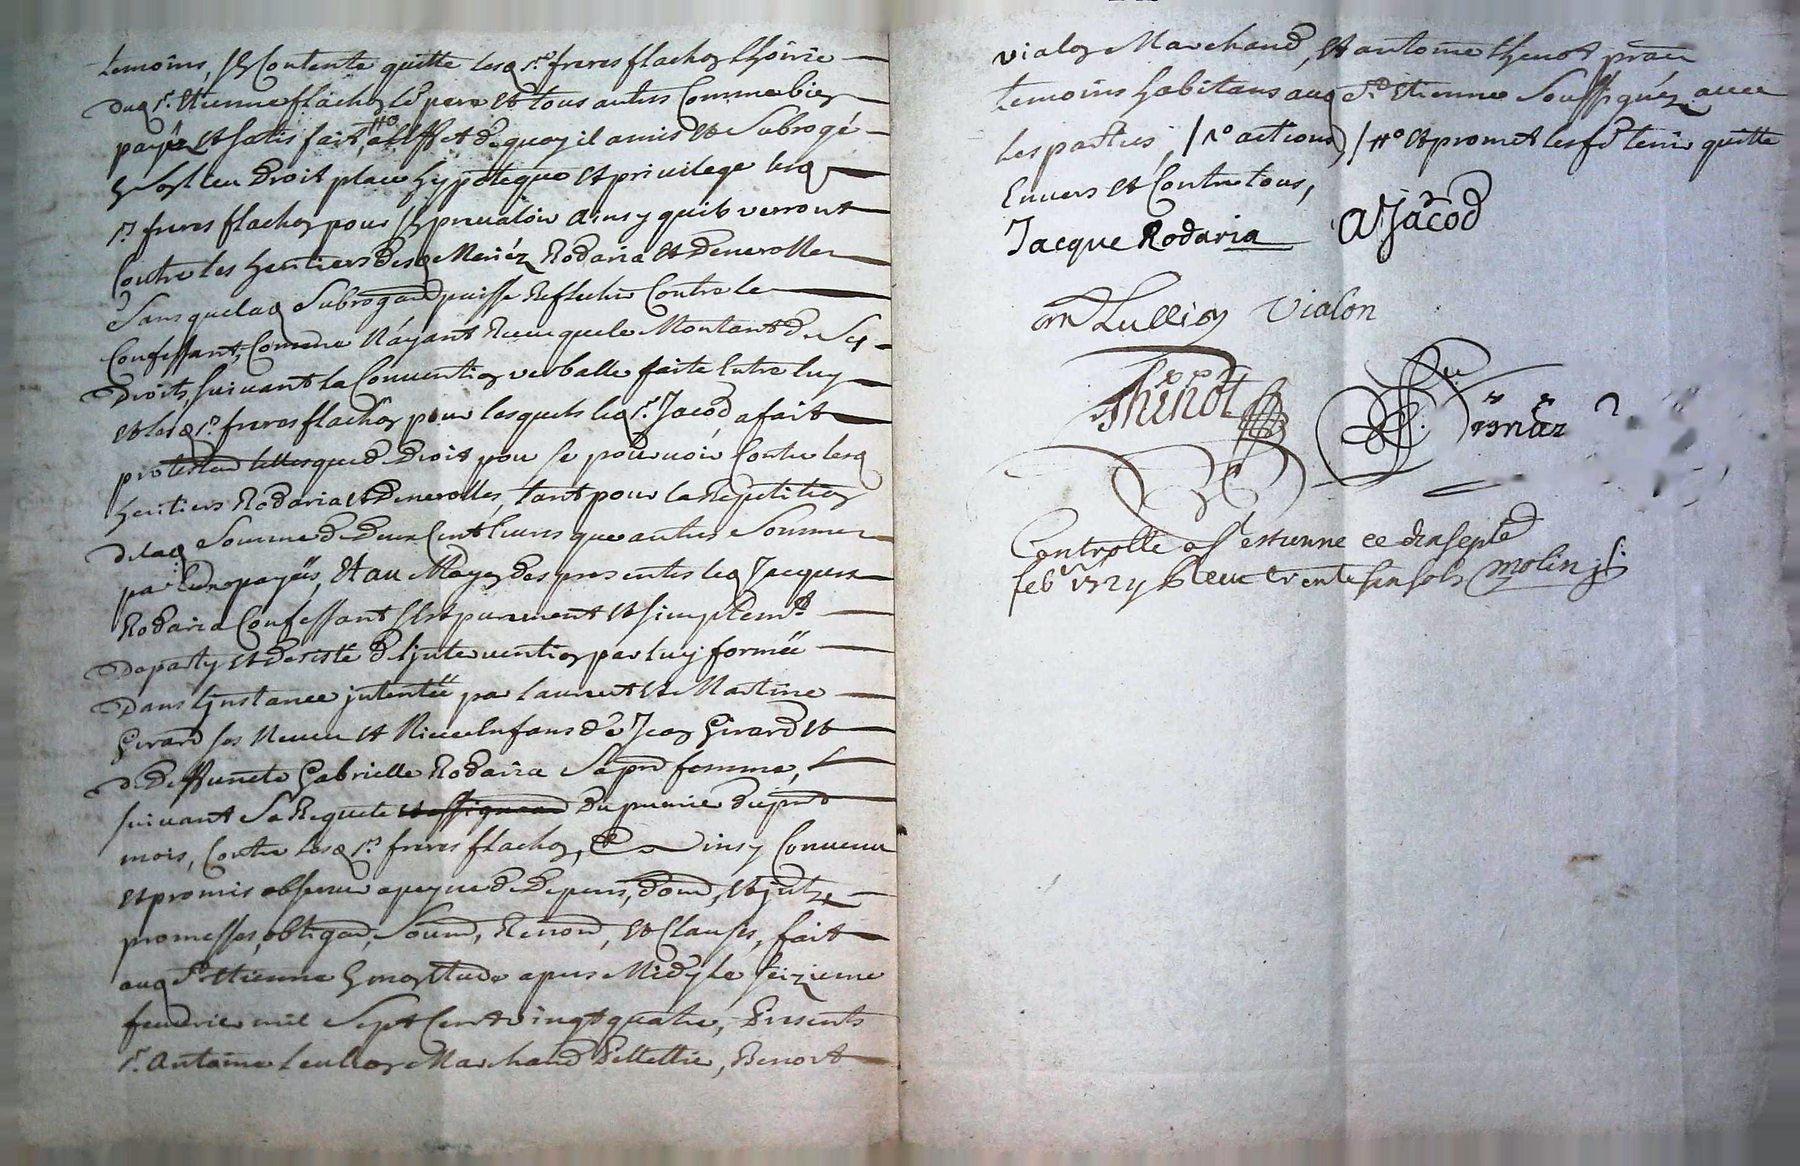 temoins, Et Contente quitte lesd. Srs. freres flachon L'hoirie
dud Sr. Etienne flachon le pere Et tous autres Comme bien
payéz Et satis fait, #o a l'effet de quoy il a mis Et Subrogé
En son lieu Droit place hypoteque Et privilege lesd
Srs. freres flachon pour s'En prevaloir ainsy quils verront
Contre les heritiers desd Meriéz Rodaria Et Denerolles
Sans que lad Subrogaon puisse Reflechir Contre le
Confessant, Comme N'ayant Reçu que le Montant de Ses
Droits, suivant la Convention verballe faite Entre luy
Et lesd Srs. freres flachon pour lesquels led Sr. Jacod, a fait
Droit pour se pourvoir Contre lesd
heritiers Rodaria Et Denerolles, tant pour la Repetition
de lad Somme de Deux Cent livres que autres Sommes
par Eux payéës, Et au Moyen des presentes led Jacques
Rodaria Confessant s'Est purement Et simplemt
Departy Et desisté de l'jntervention par luy forméë
Dans l'jnstance jntentéë par Laurent Et Martine
Girard ses Neveu Et Niece Enfans de Jean Girard Et
de Deffuncte Gabrielle Rodaria Sa prē femme,
suivant Sa Requete du premier du pnt
mois, Contre lesd Srs. freres flachon, Et ainsy Convenu
Et promis observer a peyne de Depens, dom, Et jntz
promesses, obligaon, Soumon, Renonon, Et Clauses, fait
aud St. Etienne En mon Etude apres Midy Le seizieme
feuvrier mil Sept Cent vingt quatre, Presents
Sr. Antoine Marchand Pelletie, Benoit
vialon Marchand, Et antoine thenot prāēn
temoins habitans aud St. Etienne Soussignéz avec
les parties, /1o actions) /#o Et promet les fe tenir quitte
Envers Et Contre tous,
Jacque Rodaria AJacod
Vialon
Thēnot
Controllé a St estienne ce dixsept
feb 1724 Receu trente six sols molin